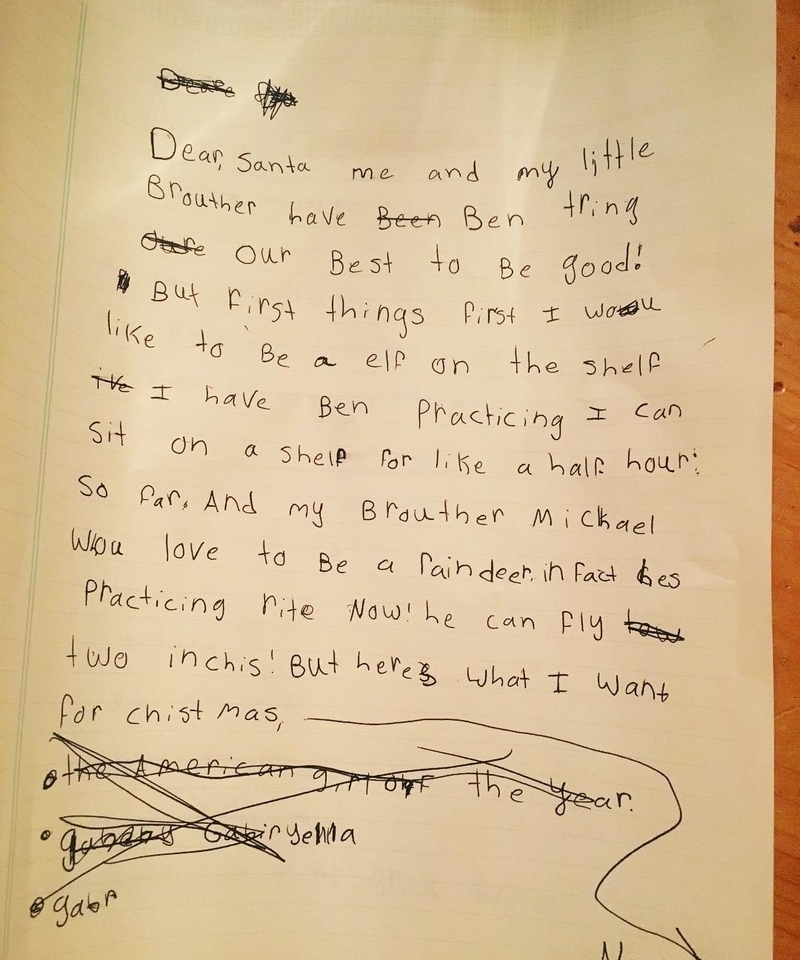 Deare
Dear, Santa me and my little
Brouther have Been Ben tring
our Best to Be good!
But first things first I wou
like to Be a elf on the shelf
ive I have Ben Practicing I can
Sit on a shelf for like a half hour:
So far. And my Brouther Michael
Wou love to Be a raindeer. in fact hes
Practicing rite Now! he can fly tow
two inchis! But heres what I want
for chistmas,
the American girl of the year.
gabeny Gabiryella
gabr